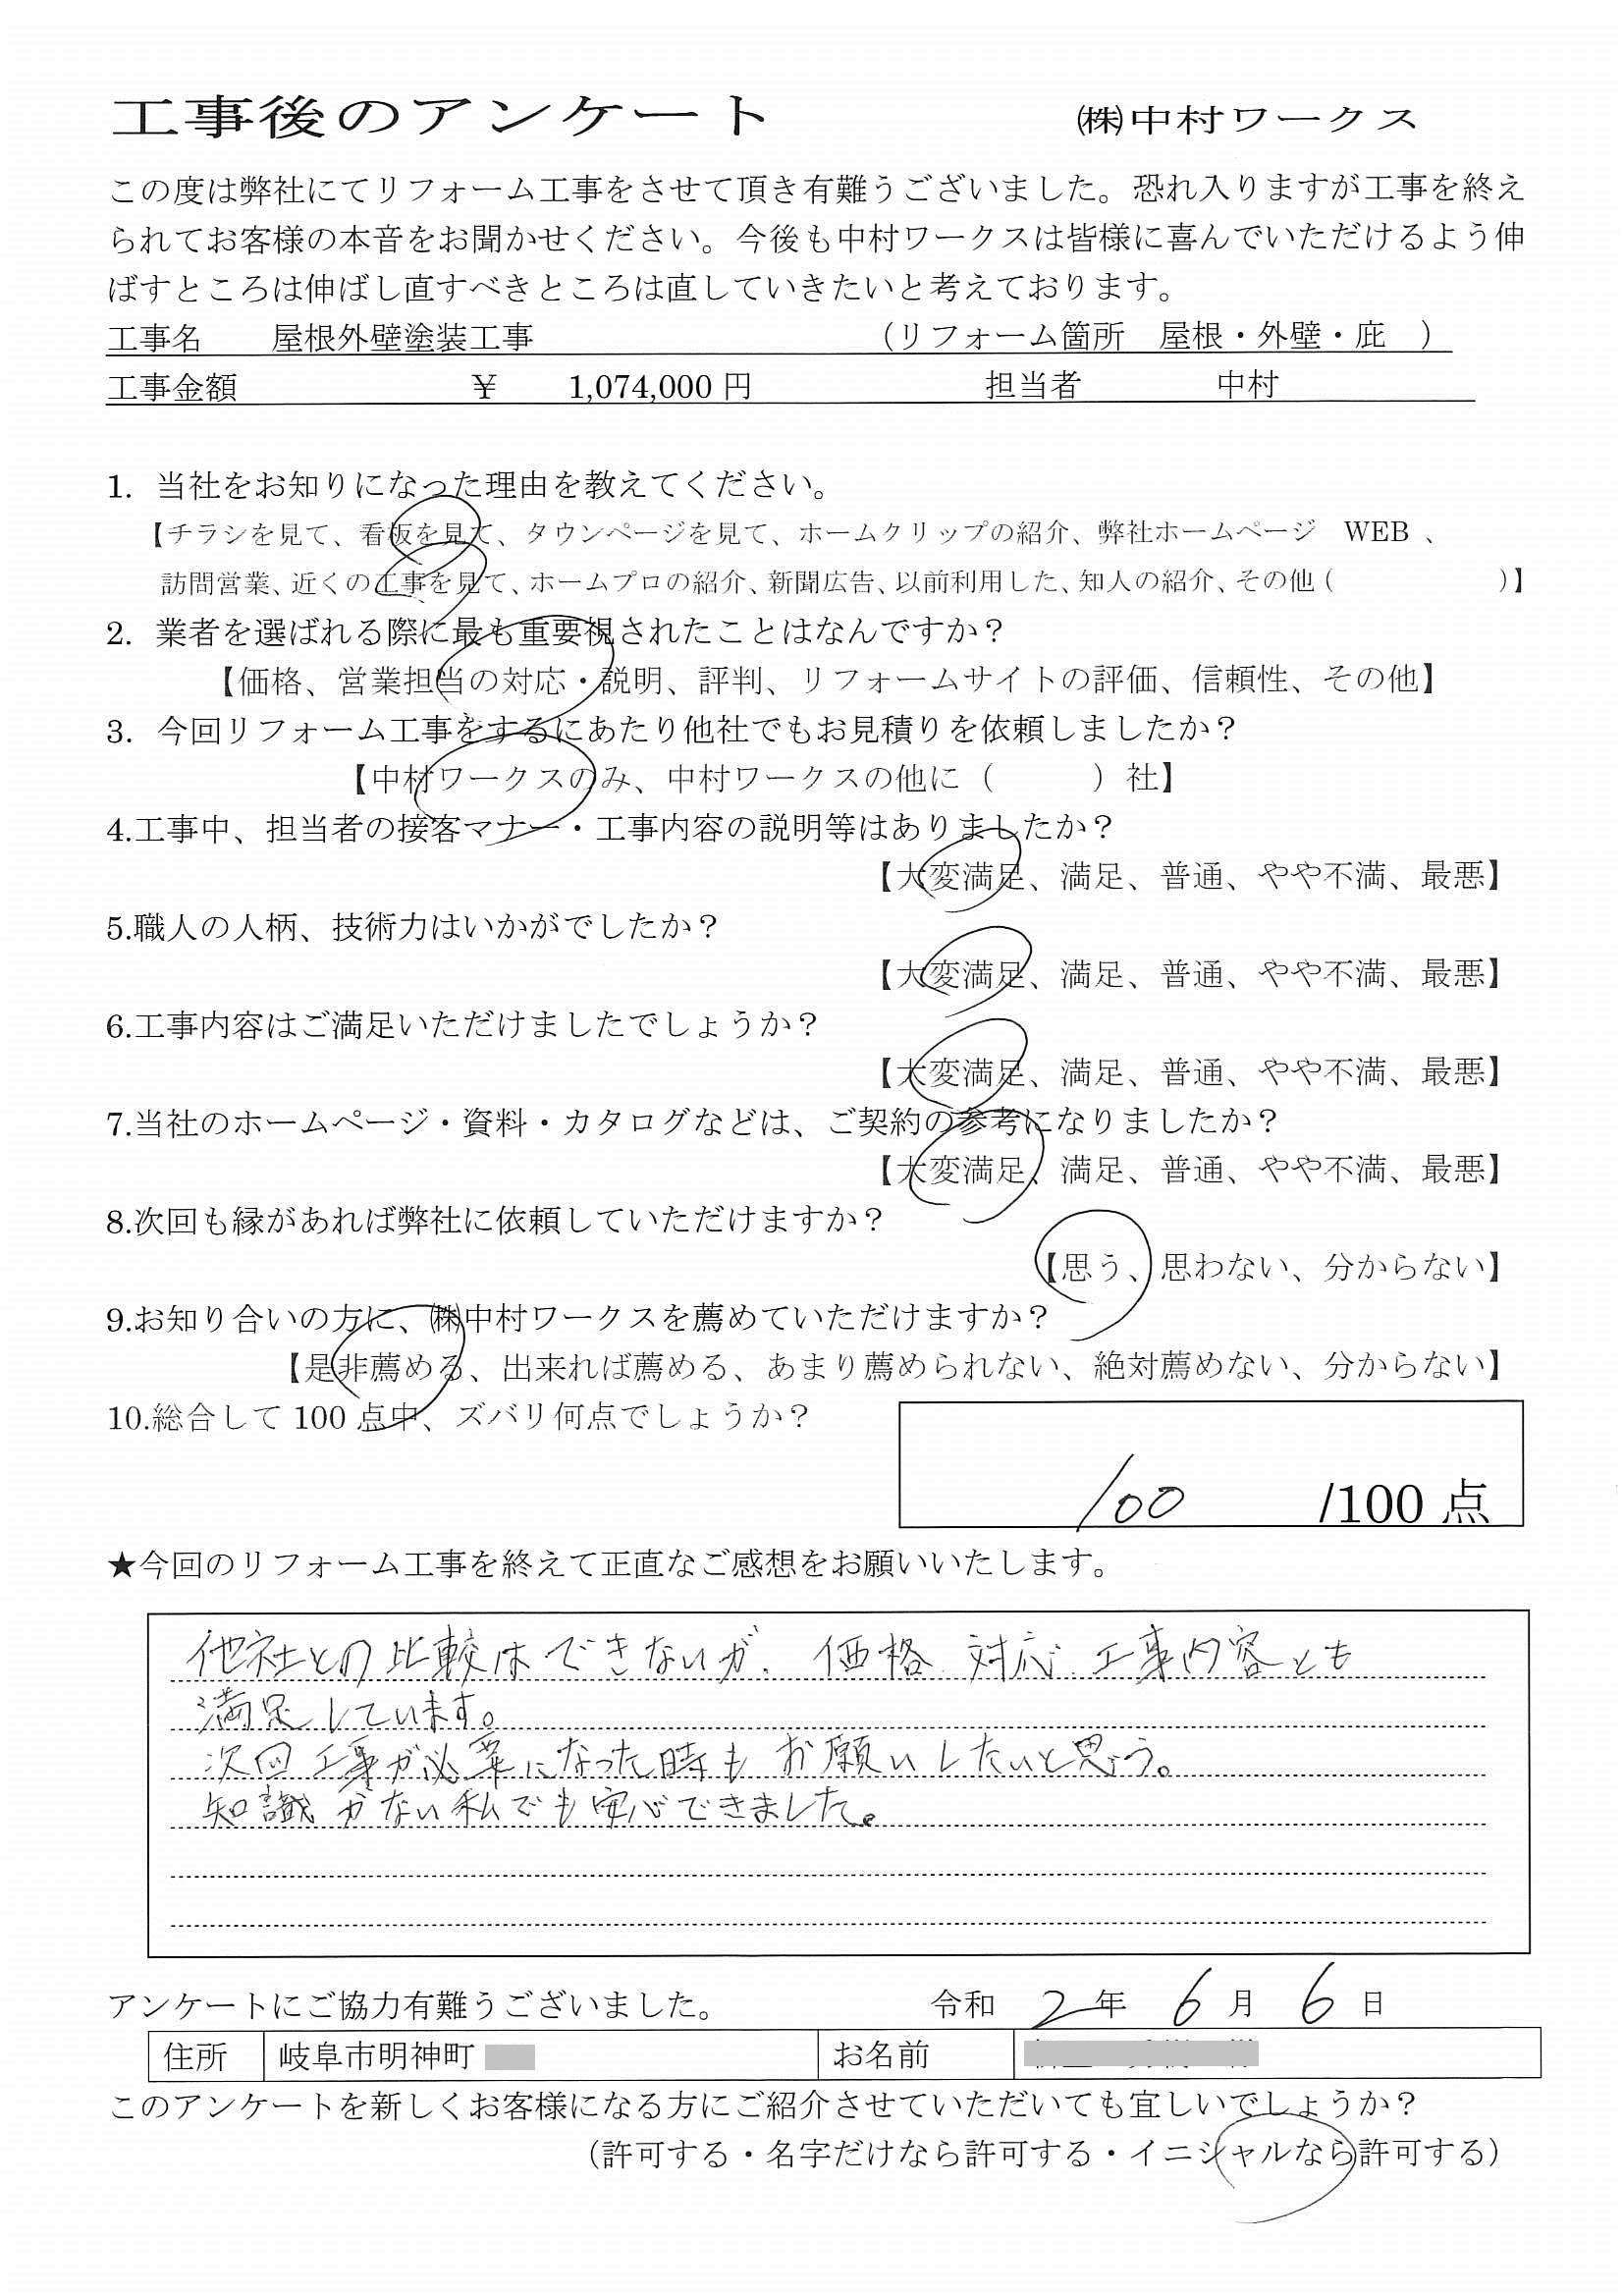 工事後のアンケート　㈱中村ワークス
この度は弊社にてリフォーム工事をさせて頂き有難うございました。恐れ入りますが工事を終え
られてお客様の本音をお聞かせください。今後も中村ワークスは皆様に喜んでいただけるよう伸
ばすところは伸ばし直すべきところは直していきたいと考えております。
工事名　屋根外壁塗装工事　（リフォーム箇所　屋根・外壁・庇　）
工事金額　￥　1,074,000 円　担当者　中村
1. 当社をお知りになった理由を教えてください。
【チラシを見て、看板を見て、タウンページを見て、ホームクリップの紹介、弊社ホームページ　WEB 、
訪問営業、近くの工事を見て、ホームプロの紹介、新聞広告、以前利用した、知人の紹介、その他（　　　　　）】
2. 業者を選ばれる際に最も重要視されたことはなんですか？
【価格、営業担当の対応・説明、評判、リフォームサイトの評価、信頼性、その他】
3. 今回リフォーム工事をするにあたり他社でもお見積りを依頼しましたか？
【中村ワークスのみ、中村ワークスの他に（　　　）社】
4.工事中、担当者の接客マナー・工事内容の説明等はありましたか？
【大変満足、満足、普通、やや不満、最悪】
5.職人の人柄、技術力はいかがでしたか？
【大変満足、満足、普通、やや不満、最悪】
6.工事内容はご満足いただけましたでしょうか？
【大変満足、満足、普通、やや不満、最悪】
7.当社のホームページ・資料・カタログなどは、ご契約の参考になりましたか？
【大変満足、満足、普通、やや不満、最悪】
8.次回も縁があれば弊社に依頼していただけますか？
【思う、思わない、分からない】
9.お知り合いの方に、㈱中村ワークスを薦めていただけますか？
【是非薦める、出来れば薦める、あまり薦められない、絶対薦めない、分からない】
10.総合して 100 点中、ズバリ何点でしょうか？
100　/100 点
★今回のリフォーム工事を終えて正直なご感想をお願いいたします。
他社との比較はできないが、価格、対応、工事内容とも
満足しています。
次回工事が必要になった時もお願いしたいと思う。
知識がない私でも安心できました。
アンケートにご協力有難うございました。　令和 2 年 6 月 6 日
住所　岐阜市明神町　お名前
このアンケートを新しくお客様になる方にご紹介させていただいても宜しいでしょうか？
（許可する・名字だけなら許可する・イニシャルなら許可する）